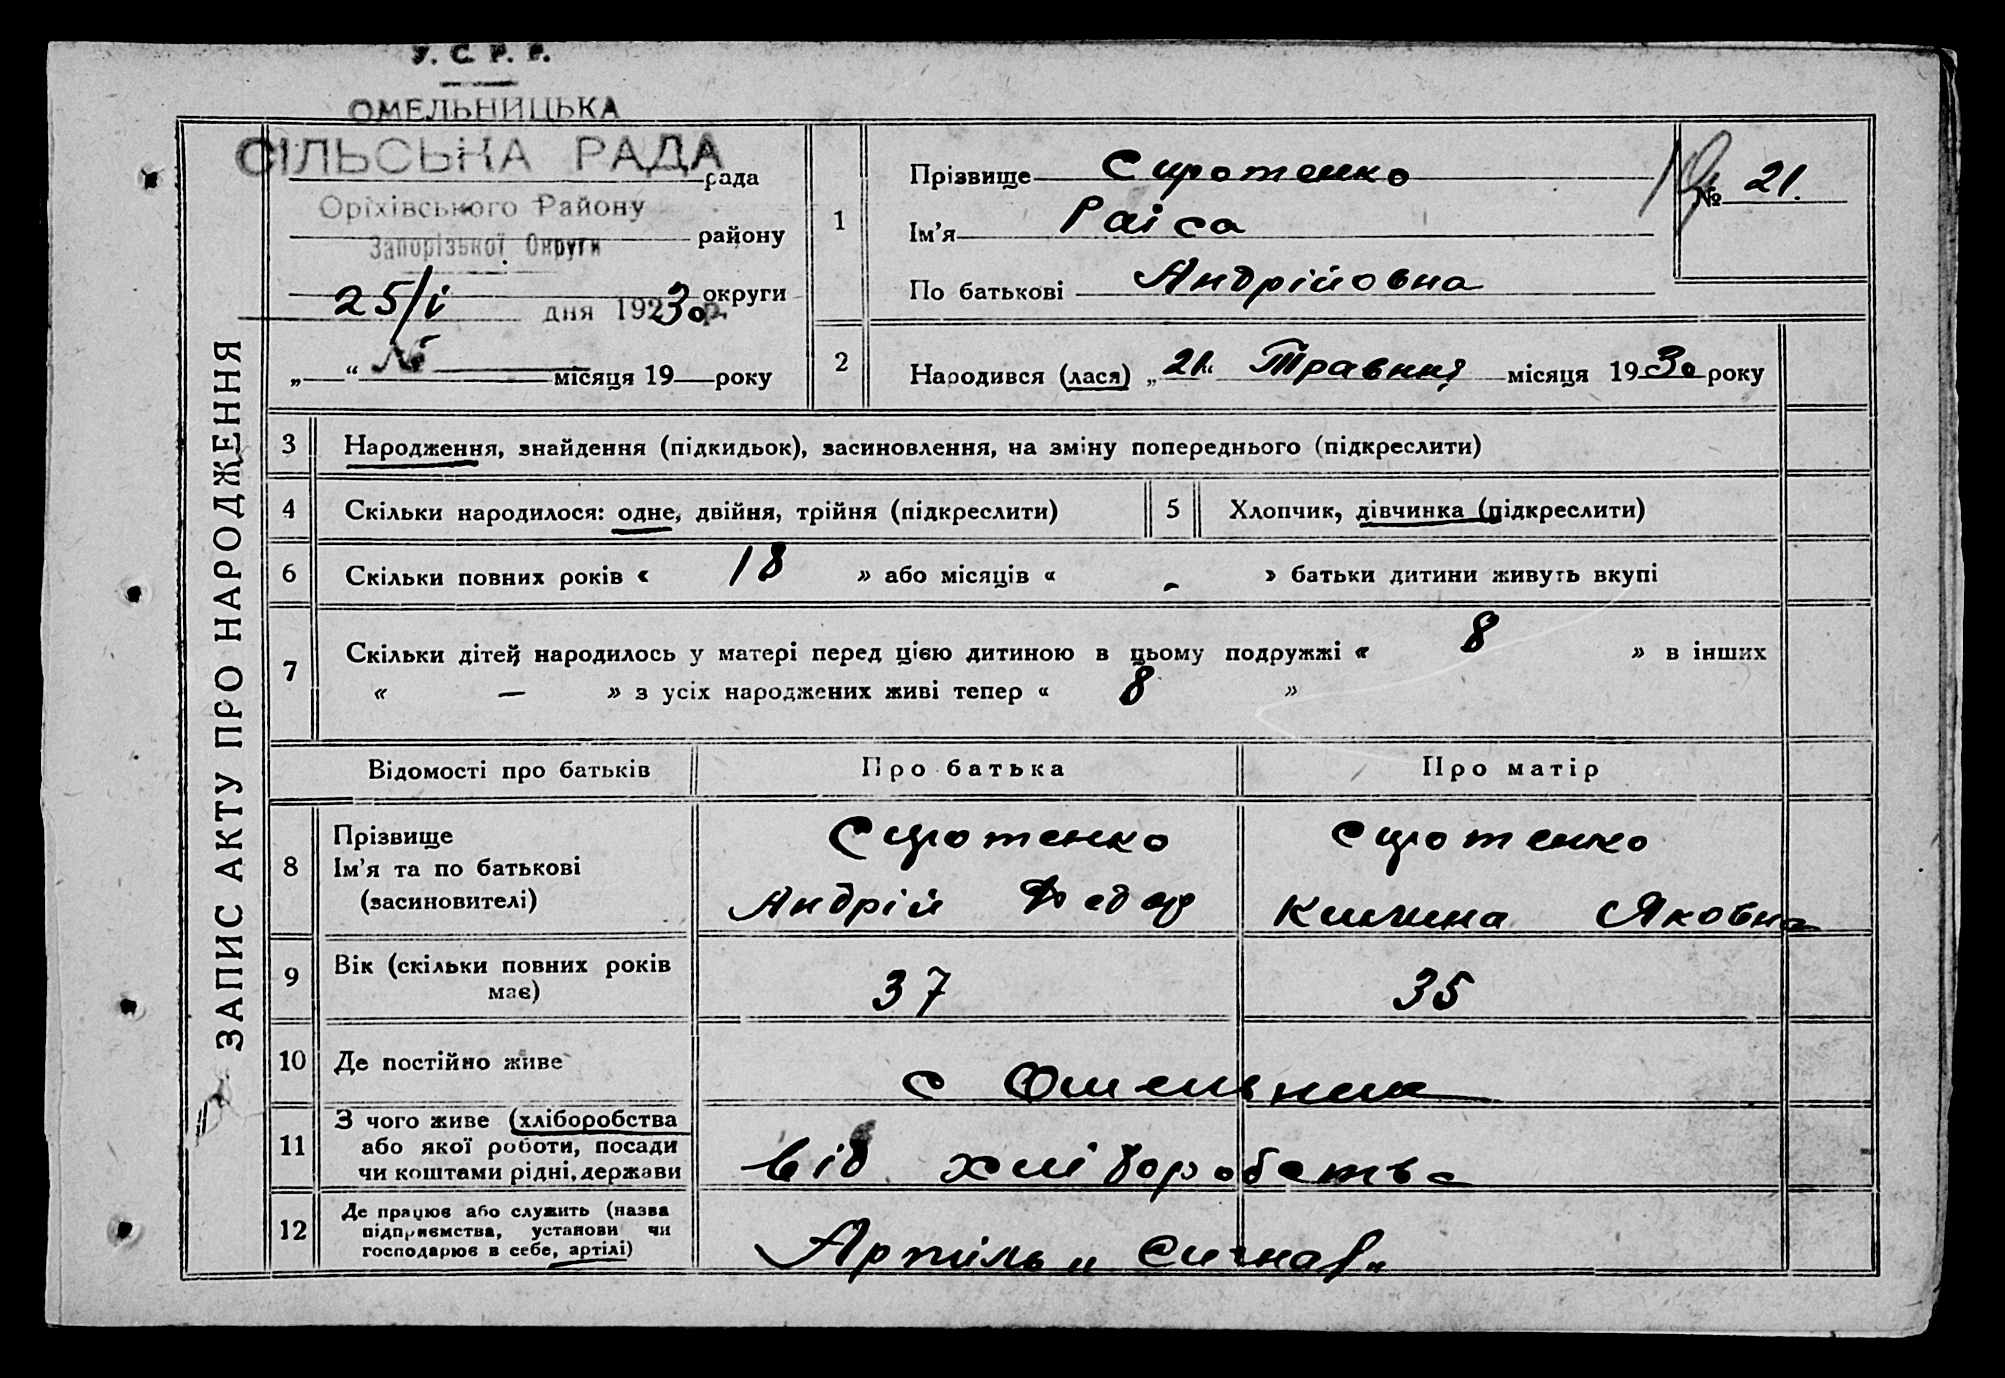 У. С. Р. Р.
ОМЕЛЬНИЦЬКА
СІЛЬСЬКА РАДА
рада
Оріхівського Району
району
Запорізької Округи
округи
25/і дня 1923о р.
№
„ “ місяця 19 року
ЗАПИС АКТУ ПРО НАРОДЖЕННЯ
1
Прізвище Сиротенко
Ім’я Раіса
По батькові Андрійовна
№ 21.
2
Народився (лася) „21“ Травння місяця 1930 року
3 Народження, знайдення (підкидьок), засиновлення, на зміну попереднього (підкреслити)
4 Скільки народилося: одне, двійня, трійня (підкреслити)
5 Хлопчик, дівчинка (підкреслити)
6 Скільки повних років « 18 » або місяців « - » батьки дитини живуть вкупі
7 Скільки дітей народилось у матері перед цією дитиною в цьому подружжі « 8 » в інших
« — » з усіх народжених живі тепер « 8 »
Відомості про батьків Про батька Про матір
8 Прізвище
Ім’я та по батькові
(засиновителі)
Сиротенко
Андрій Федор
Сиротенко
Яковна
9 Вік (скільки повних років
має)
37 35
10 Де постійно живе с Омельник
11 З чого живе (хліборобства
або якої роботи, посади
чи коштами рідні, держави
від хліборобства
12 Де працює або служить (назва
підприємства, установи чи
господарює в себе, артілі)
Артиль „Сигнал“